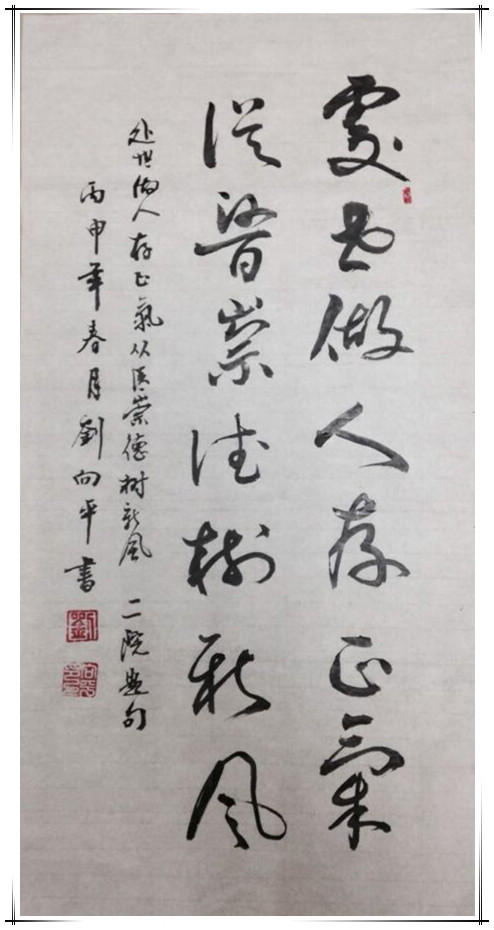 處世做人存正氣
從醫崇德樹新風
处世做人存正氣从医崇德树新风 二院题句
丙申年春月劉向平書